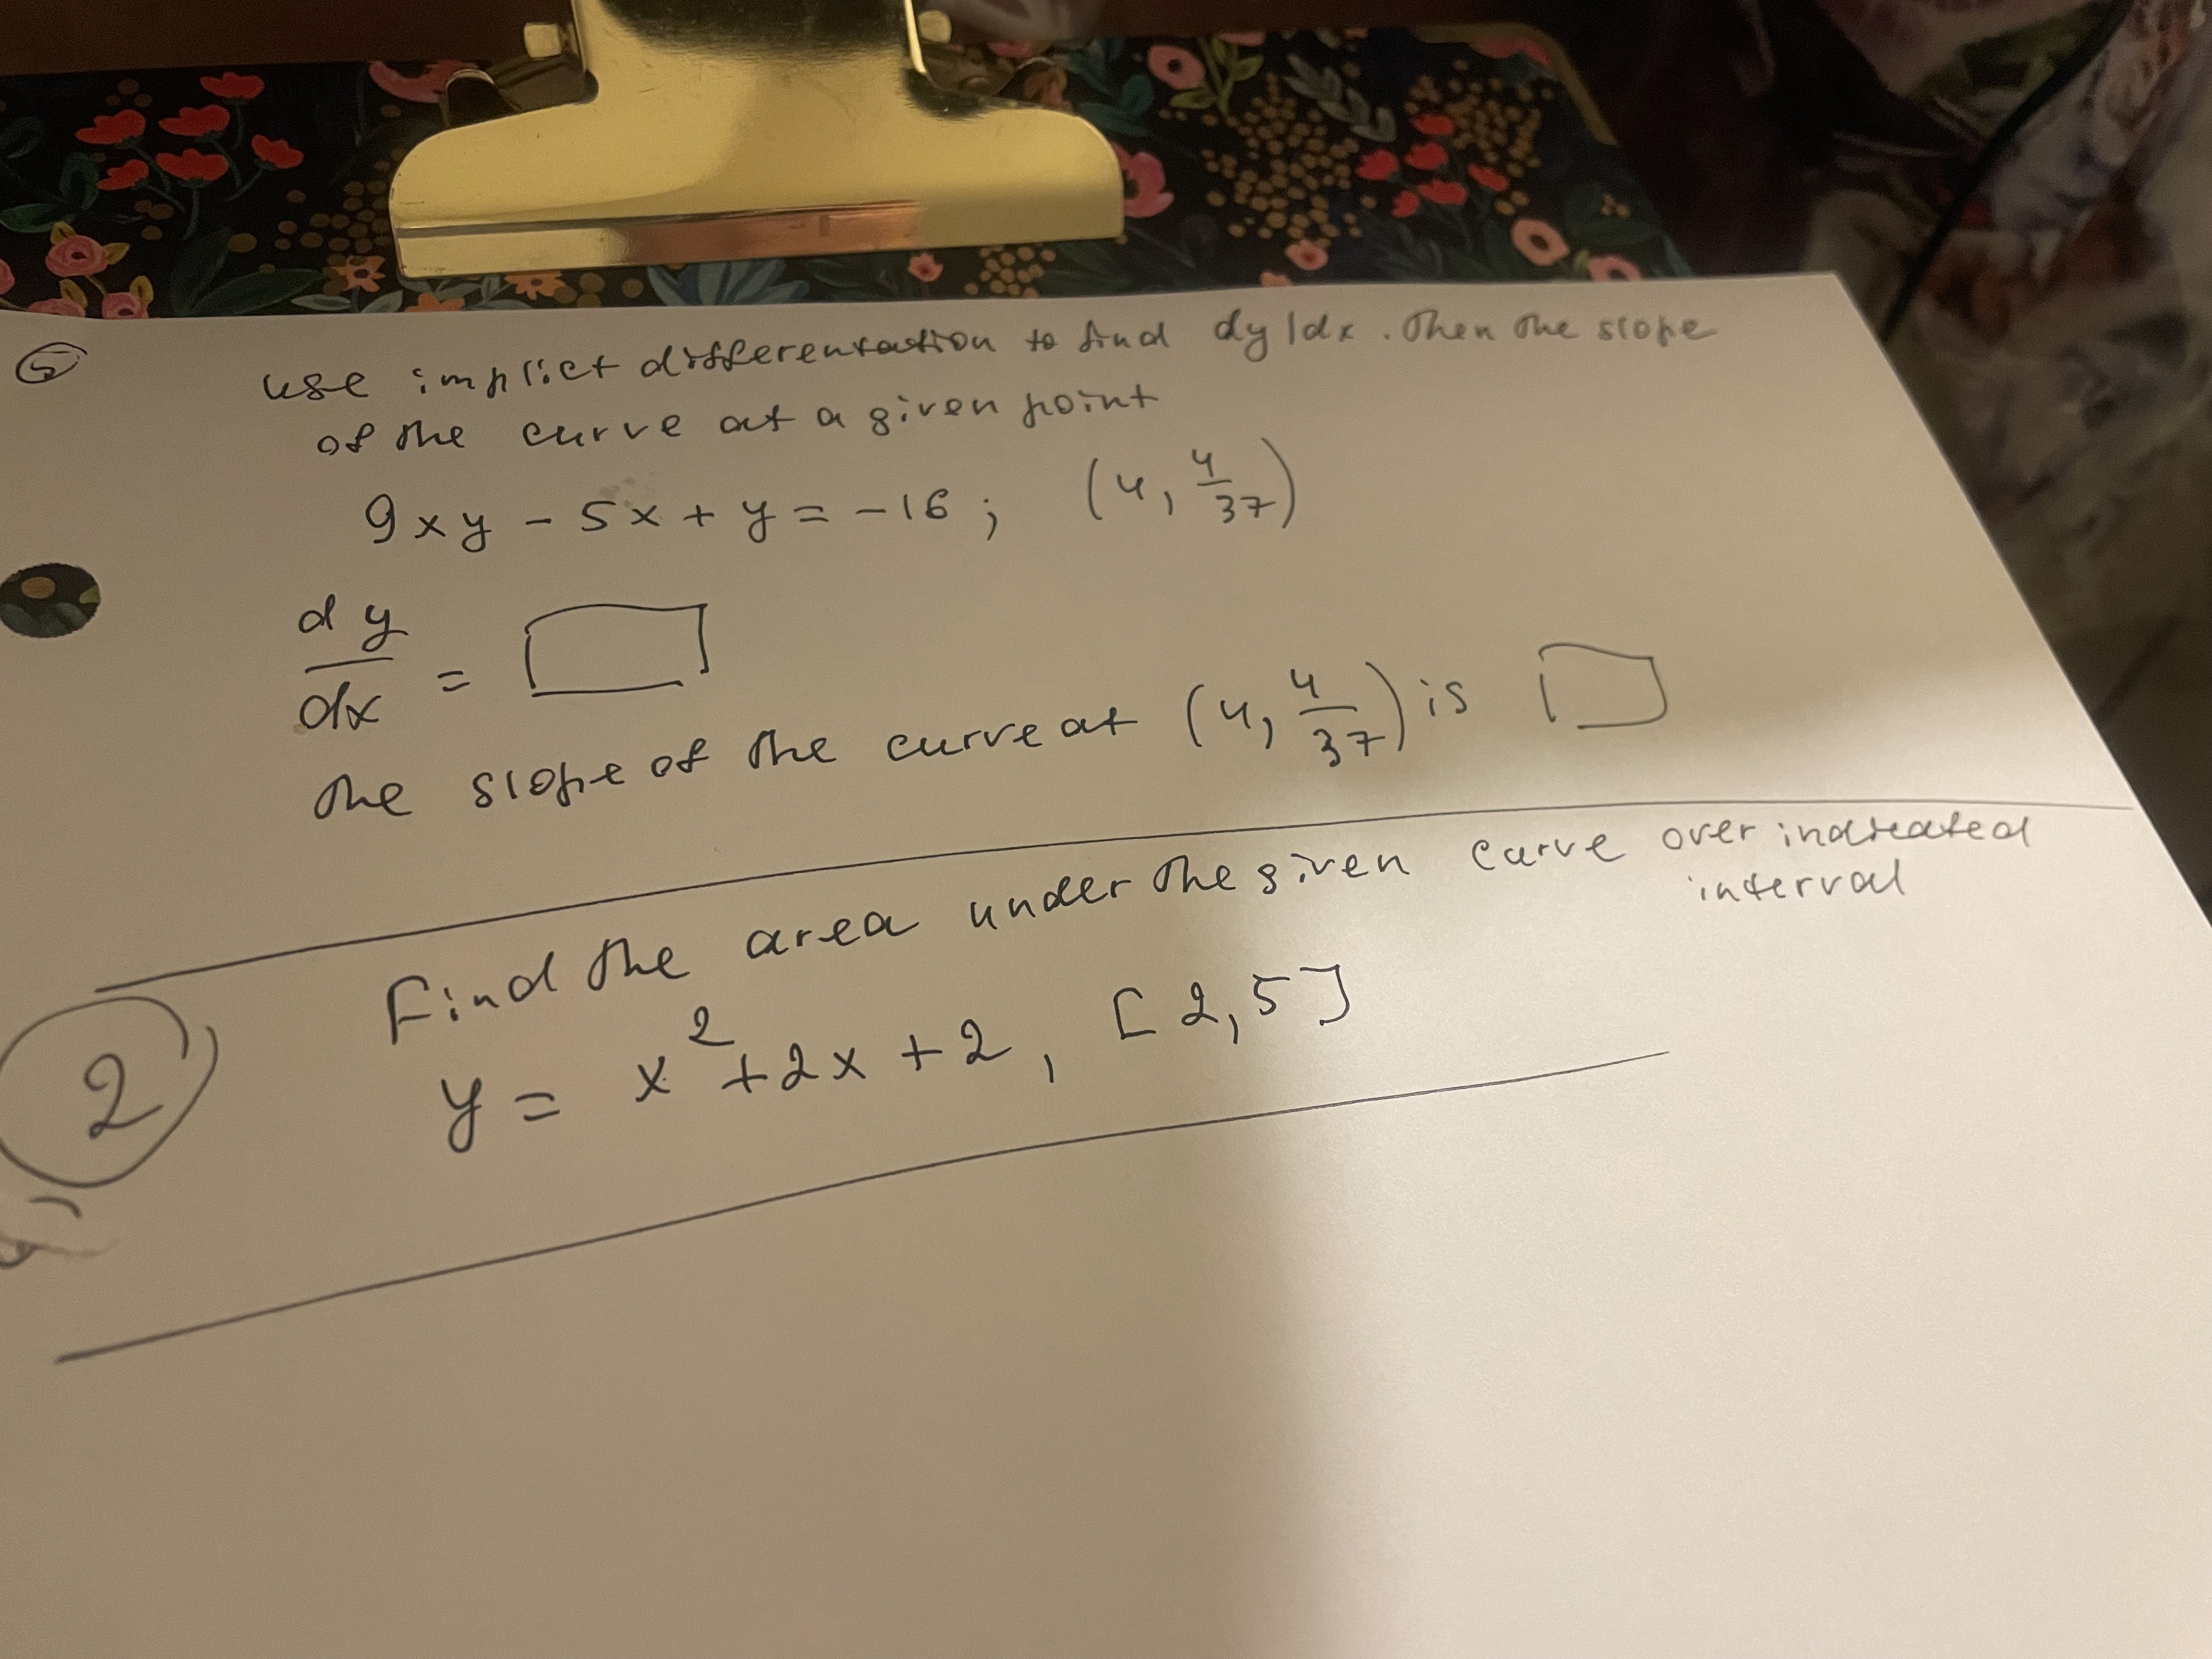 5 use implict differentation to find dy/dx. Then the slope
of the curve at a given point
9xy - 5x + y = -16; (4, 4/37)
dy/dx =
The slope of the curve at (4, 4/37) is
2 Find the area under the given curve over indicated
interval
y = x² + 2x + 2, [2,5]